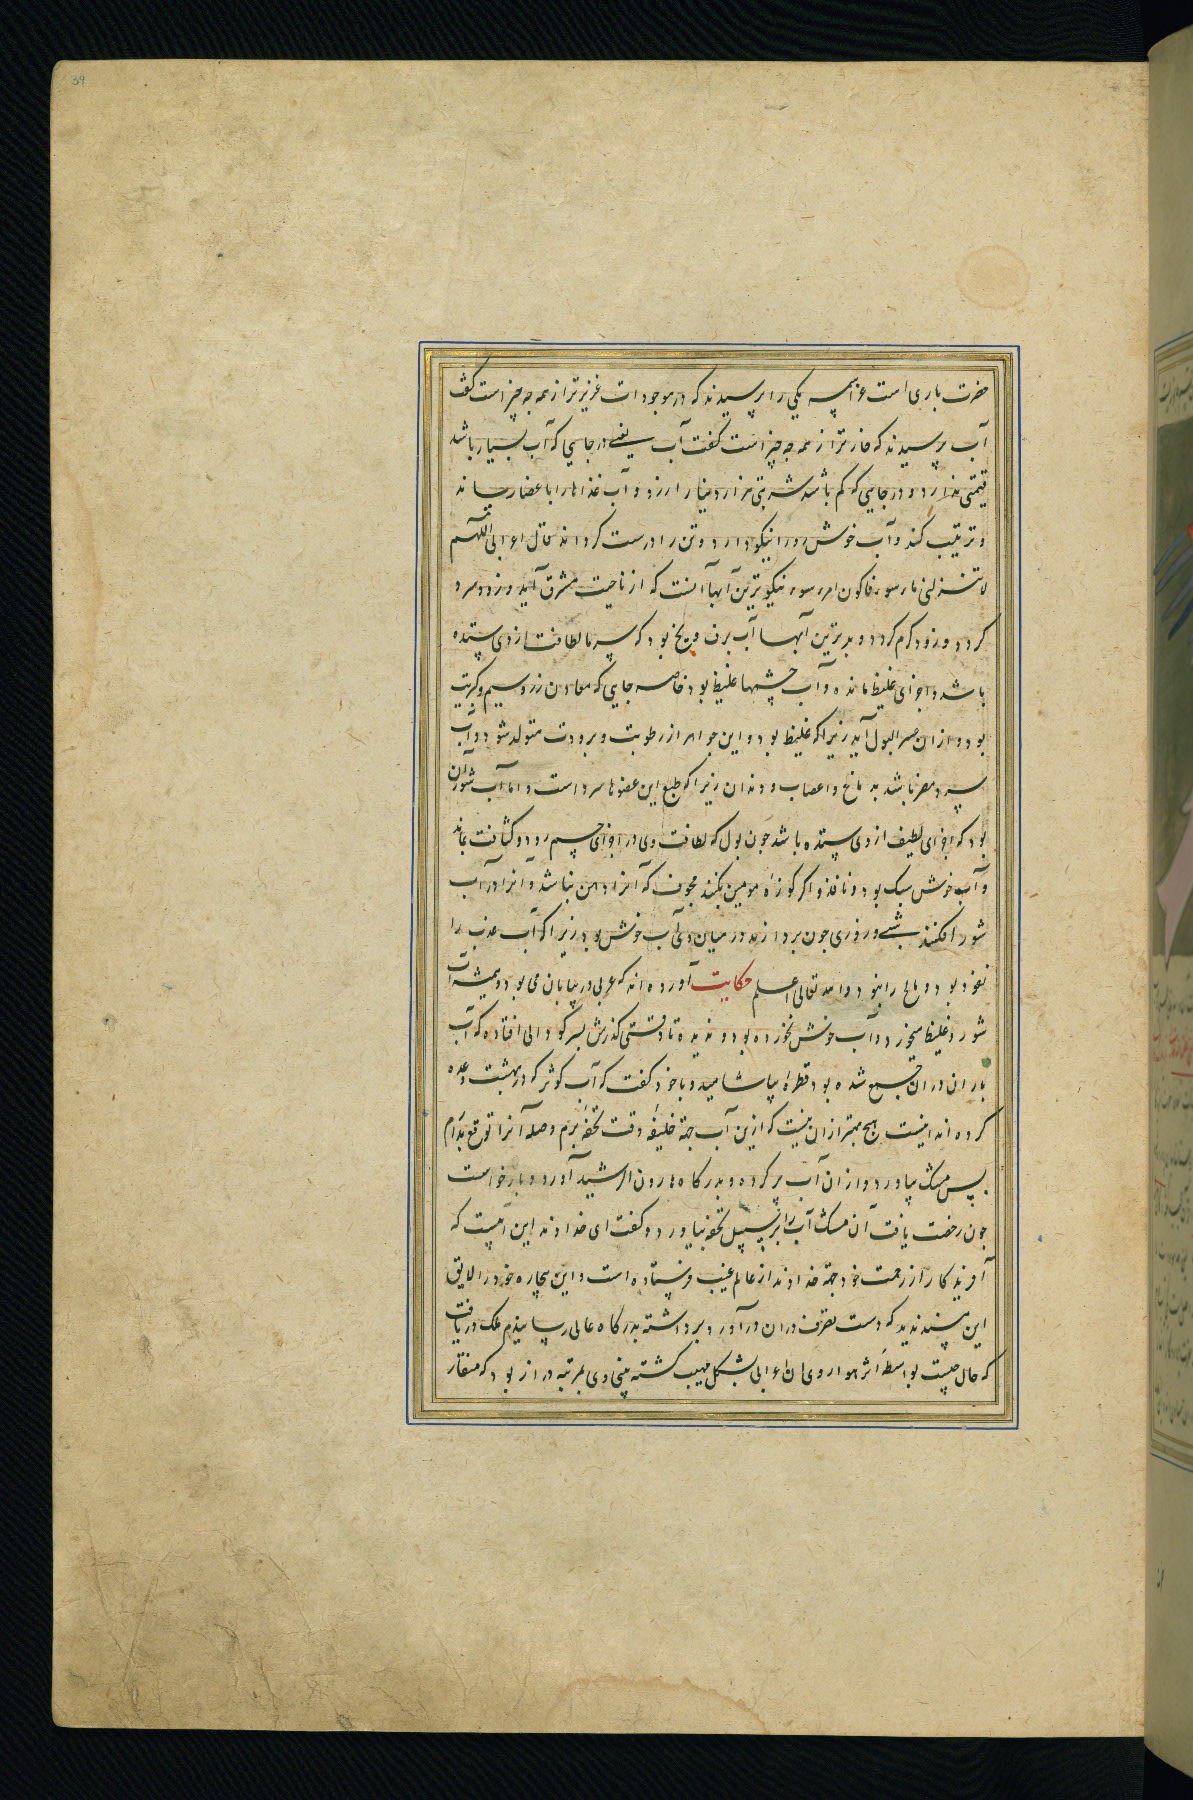 حضرت باری است عز اسمه یکی را پرسیدند که در موجودات عزیزتر از همه چه چیز است گفت
آب پرسیدند که خارتر از همه چه چیز است گفت آب یعنی در جایی که آب بسیار باشد
قیمتی ندارد و در جایی که کم باشد شربتی هزار دینار ارزد و آب غذاها را با عضا رساند
و ترتیب کند و آب خوش رو را نیکو دارد و تن را درست کرداند قال اعرابی اللهم
لا تنزلنی ماء سوء فاکون امرء سوء نیکوترین آبها آنست که از ناحیت مشرق آید و زود سرد
کردد و زود کرم کردد و بدترین آبها آب برف و یخ بود که سرما لطافت از وی ستده
باشد و اجزای غلیظ مانده و آب چشمها غلیظ بود خاصه جایی که معادن زر و سیم و کبریت
بود و از ان عسر البول آید زیرا که غلیظ بود و این جواهر از رطوبت و برودت متولد شود و آب
سرد مضر باشد به مخ و اعصاب و دندان زیرا که طبع این عضوها سرد است و اما آب شور آن
بود که اجزای لطیف از وی ستده باشد چون بول که لطافت وی در اجزای جسم رود و کثافت بماند
و آب خوش سبک بود و نافذ و اکر کوزه مومین بکنند مجوف که آنرا دهن نباشد و آنرا در آب
شور افکنند شبی و روزی چون بردارند در میان وی آب خوش بود زیرا که آب عذب را
نفوذ بود و مالح را نبود و الله تعالی اعلم حکایت آورده اند که عربی در بیابان می بود و همیشه آب
شور و غلیظ میخورد و آب خوش نخورده بود و ندیده تا وقتی کذرش بسر کودالی افتاده که آب
باران در ان جمع شده بود قطره بیاشامید و با خود کفت که آب کوثر که در بهشت وعده
کرده اند اینست هیچ بهتر از ان نیست که ازین آب جهة خلیفه وقت تحفه برم و صله آنرا توقع بدارم
پس مشک بیاورد و از ان آب پر کرده و بدرکاه هارون الرشید آورد و بار خواست
چون رخصت یافت آن مشک آب را بر سبیل تحفه بیاورد و کفت ای خداوند این آبیست که
آفریدکار از رحمت خود جهة خداوند از عالم غیب فرستاده است و این بیچاره خود را لایق
این ندید که دست تصرف در ان در آورد برداشته بدرکاه عالی رسانیدم ملک دریافت
که حال چیست بواسطه اثر هوا روی ان اعرابی بشکل مهیب کشته بینی وی بمرتبه دراز بود که منقار